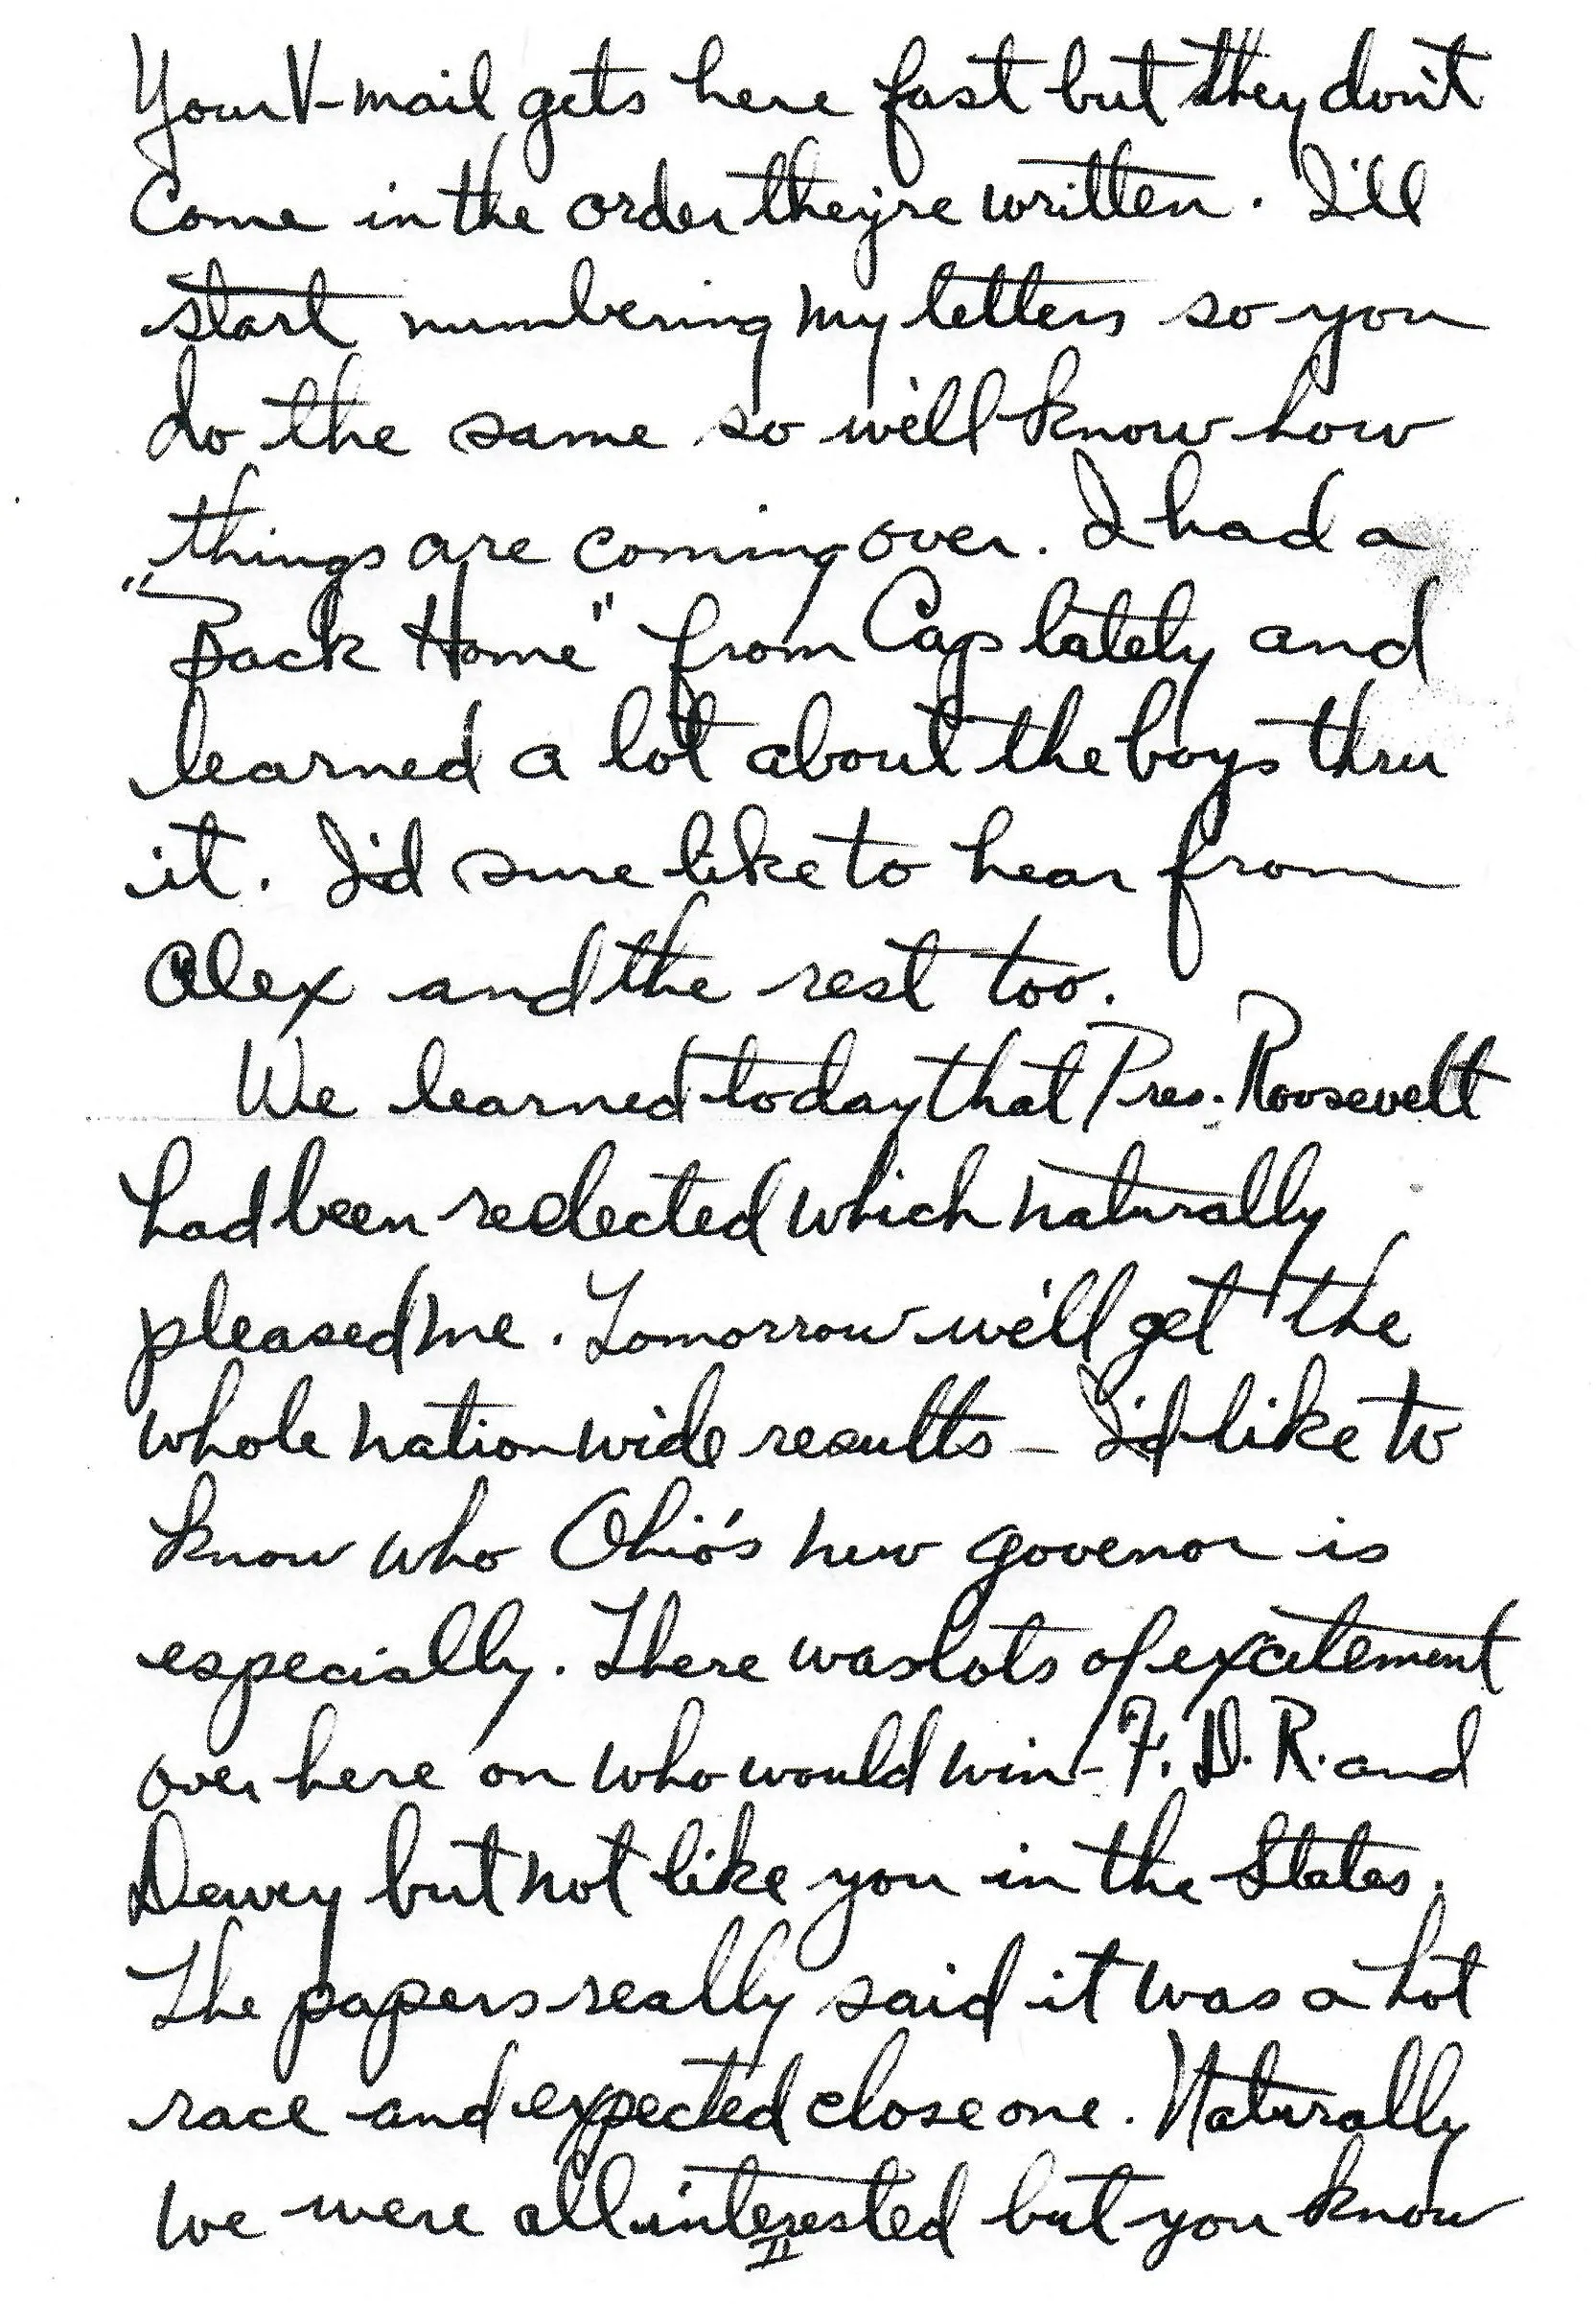 Your V-mail gets here fast but they don't
come in the order they're written. I'll
start numbering my letters so you
do the same so we'll know how
things are coming over. I had a
"Back Home" from Cap lately and
learned a lot about the boys thru
it. I'd sure like to hear from
Alex and the rest too.
We learned today that Pres. Roosevelt
had been reelected which naturally
pleased me. Tomorrow we'll get the
whole nation wide results - I'd like to
know who Ohio's new govenor is
especially. There was lots of excitement
over here on who would win - F. D. R. and
Dewey but not like you in the States.
The papers really said it was a hot
race and expected close one. Naturally
we were all interested but you know
II